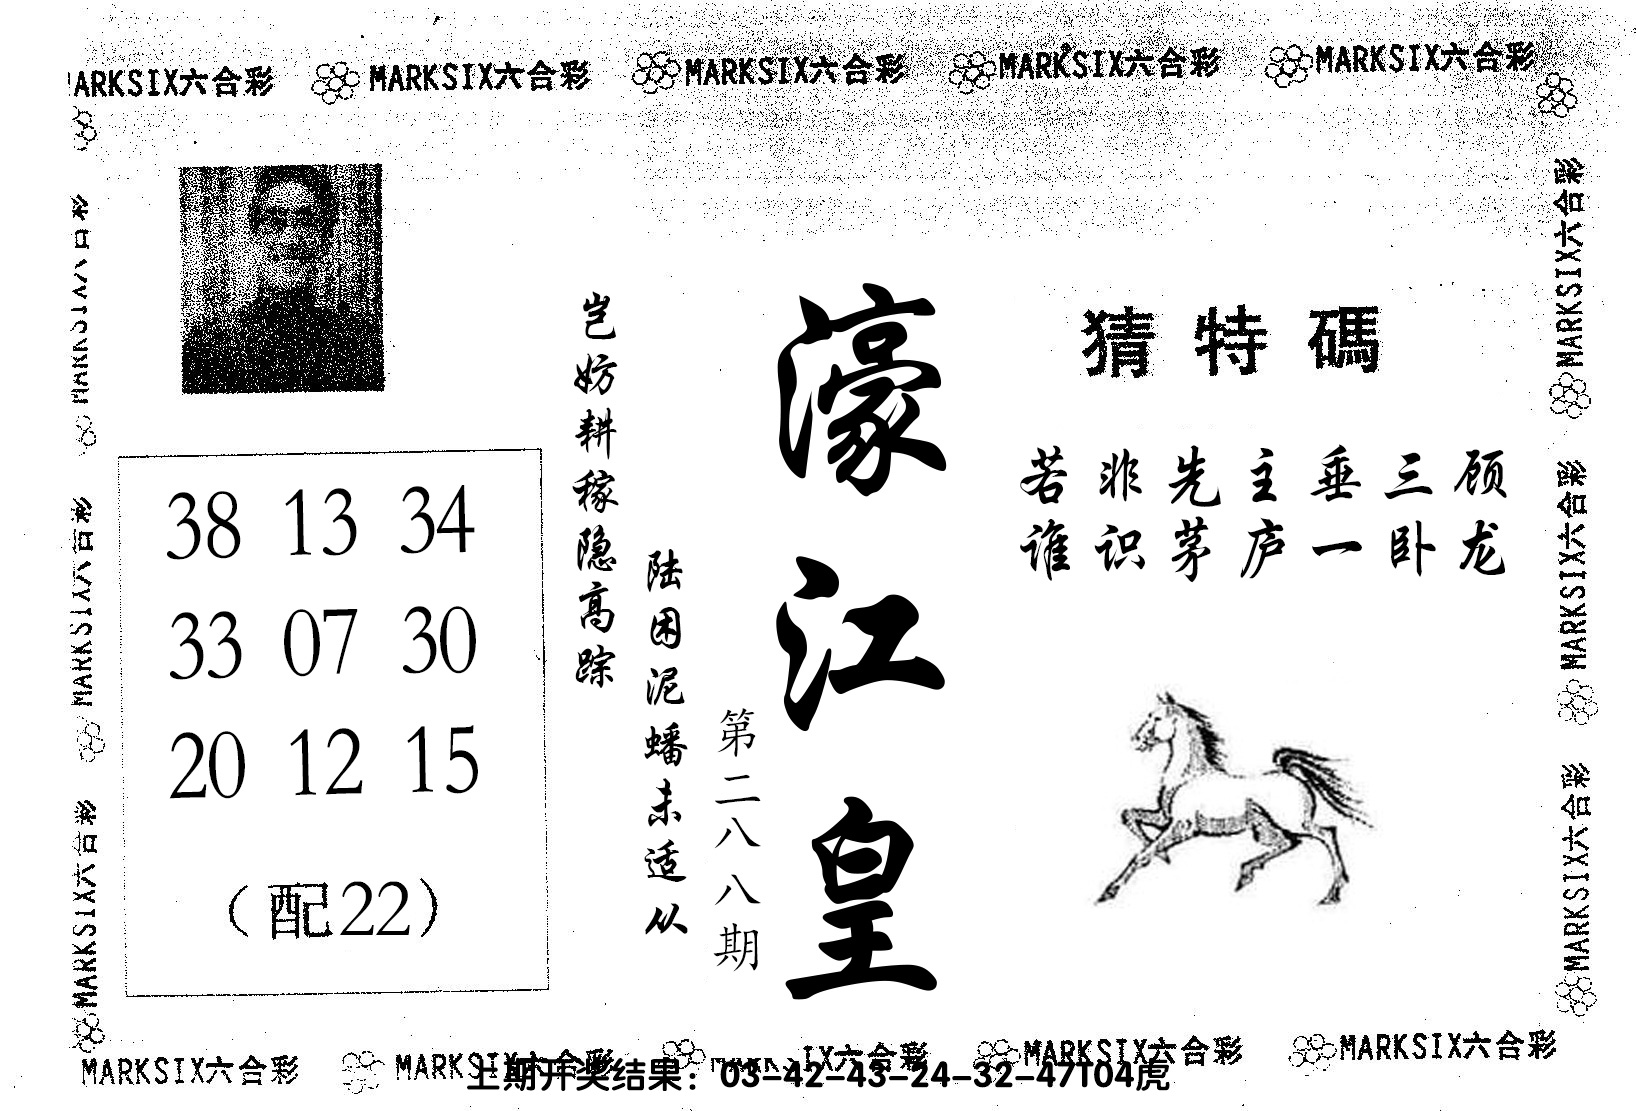 MARKSIX六合彩 MARKSIX六合彩 MARKSIX六合彩 MARKSIX六合彩
MARKSIX六合彩
濠江皇
第二八八期
陆困泥蟠未适从
岂妨耕稼隐高踪
猜特碼
若非先主垂三顾
谁识茅庐一卧龙
38 13 34
33 07 30
20 12 15
（配22）
MARKSIX六合彩
MARKSIX六合彩
MARKSIX六合彩
MARKSIX六合彩
MARKSIX六合彩
MARKSIX六合彩 MARKSIX六合彩 MARKSIX六合彩 MARKSIX六合彩
上期开奖结果：03-42-43-24-32-47T04虎